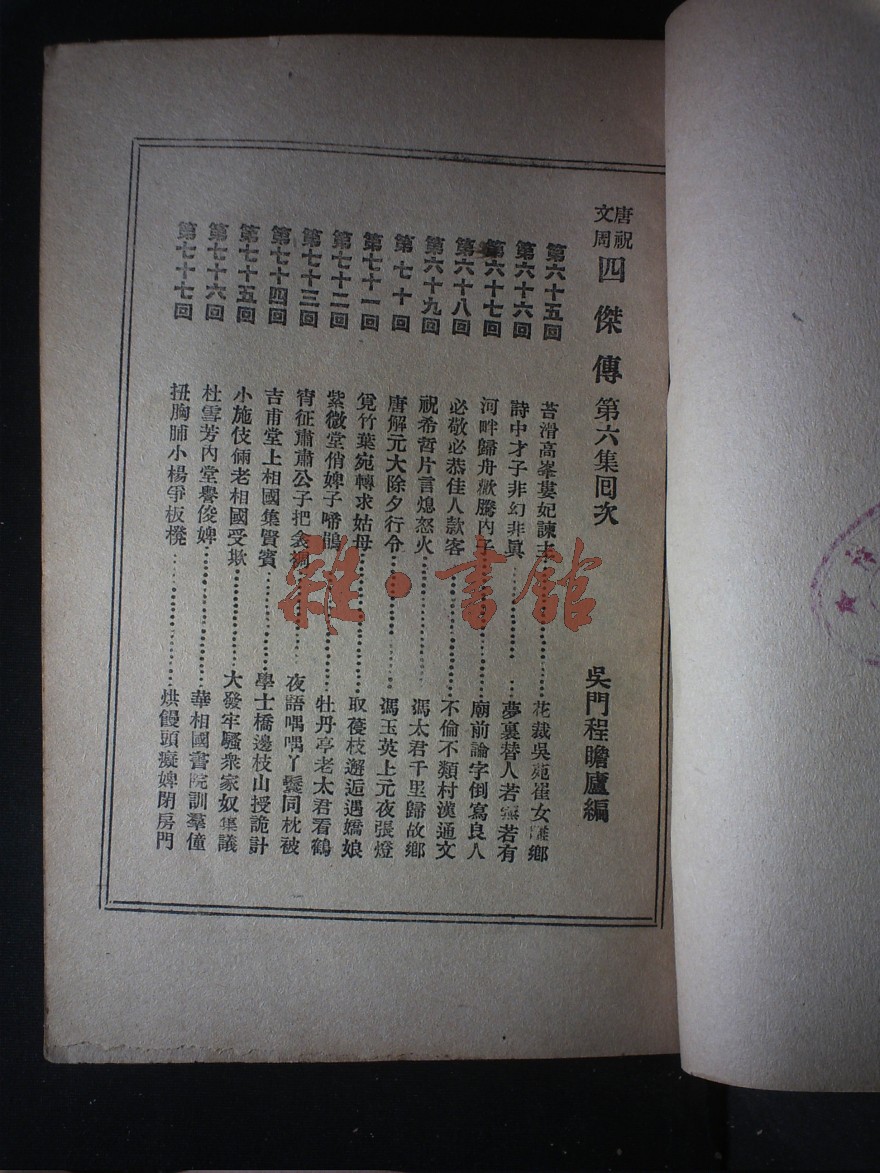 唐祝文周四傑傳 第六集回次
吳門程瞻廬編
第六十五回 苔滑高峯婁妃諫主 花裁吳苑崔女離鄉
第六十六回 詩中才子非幻非眞 夢裏替人若無若有
第六十七回 河畔歸舟歡騰內子 廟前論字倒寫良人
第六十八回 必敬必恭佳人款客 不倫不類村漢通文
第六十九回 祝希哲片言熄怒火 馮太君千里歸故鄉
第七十回 唐解元大除夕行令 馮玉英上元夜張燈
第七十一回 覓竹葉宛轉求姑母 取蓤枝邂逅遇嬌娘
第七十二回 紫微堂俏婢子啼鵑 牡丹亭老太君看鶴
第七十三回 宵征肅肅公子把衾裯 夜語喁喁丫鬟同枕被
第七十四回 吉甫堂上相國集賢賓 學士橋邊枝山授詭計
第七十五回 小施伎倆老相國受欺 大發牢騷衆家奴集議
第七十六回 杜雪芳內堂譽俊婢 華相國書院訓羣僮
第七十七回 扭胸脯小楊爭板櫈 烘饅頭癡婢閉房門
雜·書館